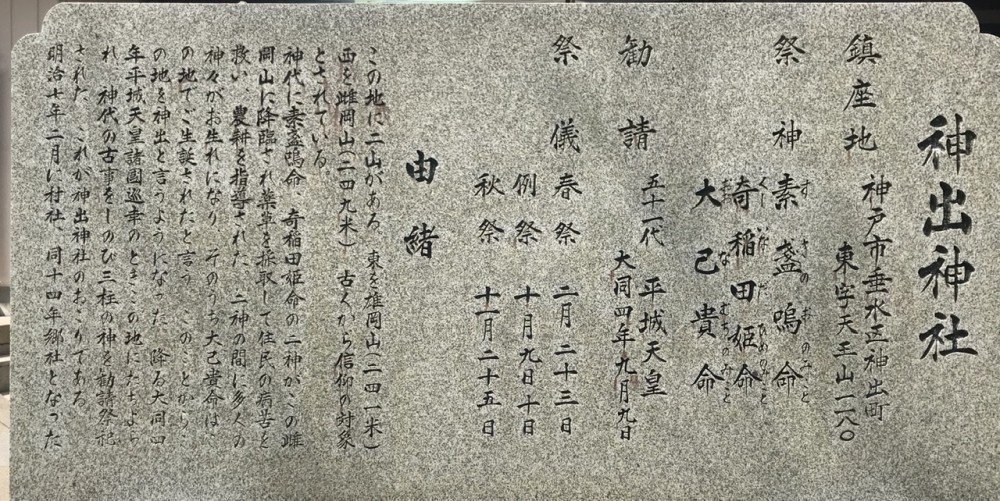 神出神社
鎮座地
神戸市垂水区神出町
東字天王山一一八〇
祭神
素盞嗚命
すさのおのみこと
奇稲田姫命
くしいなだひめのみこと
大己貴命
おおなむちのみこと
勧請
五十一代 平城天皇
大同四年九月九日
祭儀
春祭 二月二十三日
例祭 十月九日十日
秋祭 十一月二十五日
由緒
この地に二山がある、東を雄岡山(二四一米)
西を雌岡山(二四九米) 古くから信仰の対象
とされている。
神代に素盞嗚命、奇稲田姫命の二神がこの雌
岡山に降臨され薬草を採取して住民の病苦を
救い、農耕を指導された、二神の間に多くの
神々がお生れになり、そのうち大己貴命は
の地でご生誕されたと言う、このことからこ
の地を神出と言うようになった、降る大同四
年平城天皇諸國巡幸のときこの地にたちよら
れ、神代の古事をしのび三柱の神を勧請祭祀
された、これが神出神社のおこりである。
明治七年二月に村社、同十四年郷社となった